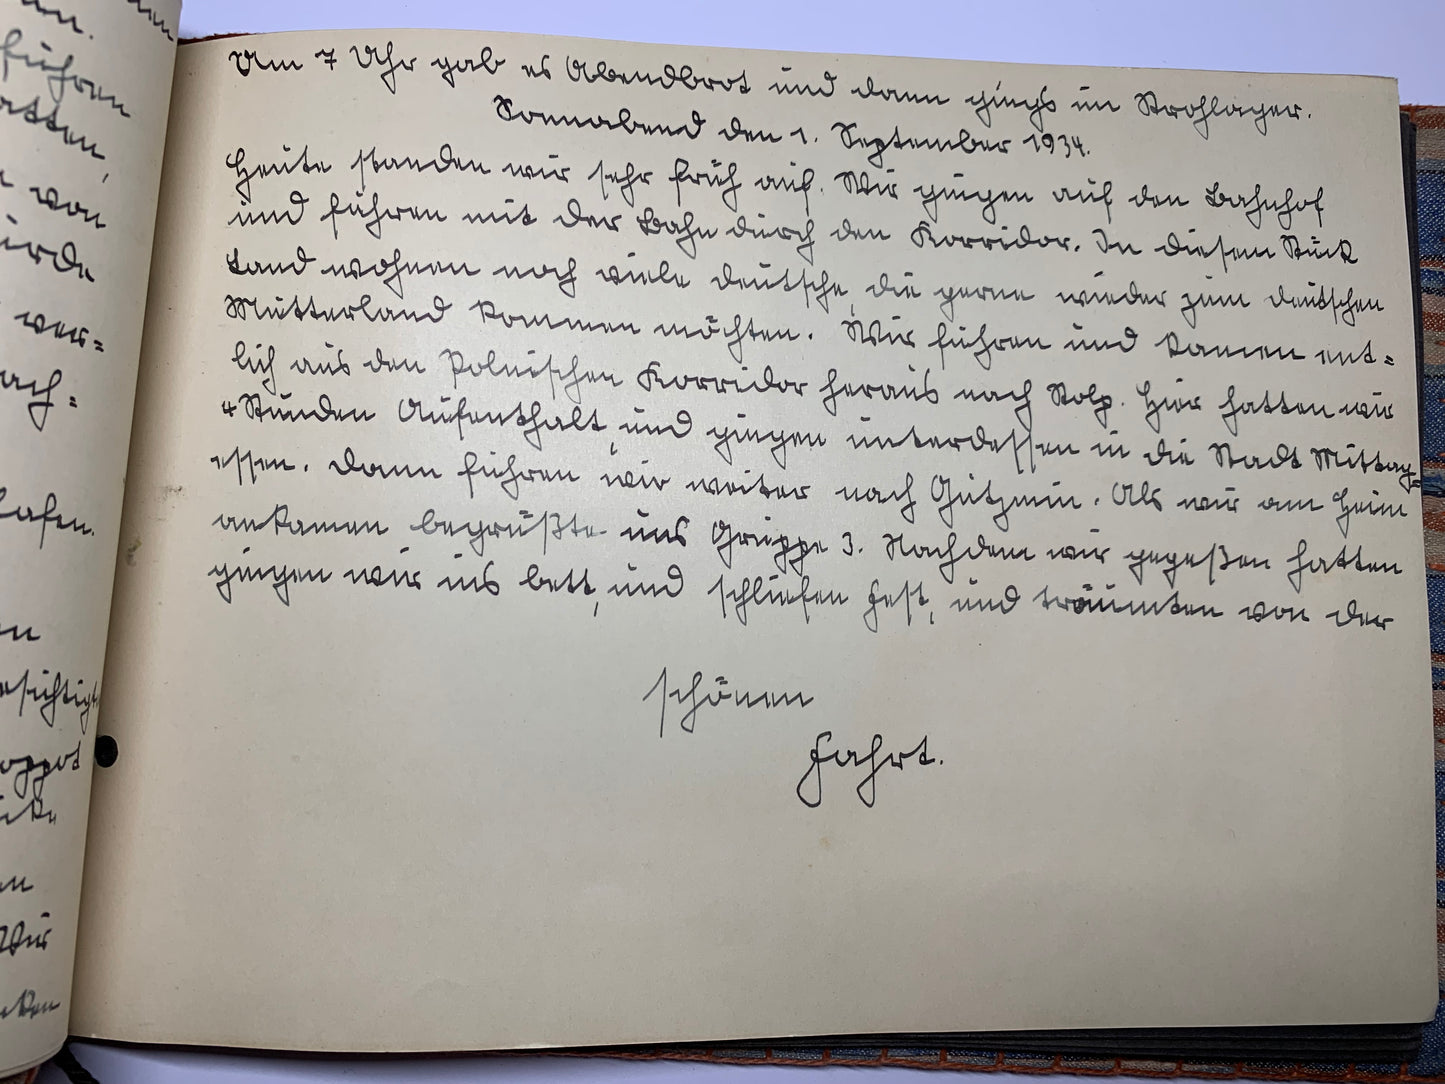 nn.
führen
atten,
von
ürde
ver-
ach-
lafen.
esichtigt
oppot
Wir
Um 7 Uhr gab es Abendbrot und dann ging's im Strohlager.
Sonnabend den 1. September 1934.
Heute standen wir sehr früh auf. Wir gingen auf den Bahnhof
und fuhren mit der Bahn durch den Korridor. In diesem Stück
Land wohnen noch viele deutsche, die gerne wieder zum deutschen
Mutterland kommen möchten. Wir fuhren und kamen ent=
lich aus den Polnischen Korridor heraus nach Stolp. Hier hatten wir
4 Stunden Aufenthalt, und gingen unterdessen in die Stadt Mittag=
essen. Dann fuhren wir weiter nach Gützmin. Als wir am Heim
ankamen begrüßte uns Gruppe 3. Nachdem wir gegeßen hatten
gingen wir ins bett, und schliefen fest, und träumten von der
schönen
Fahrt.